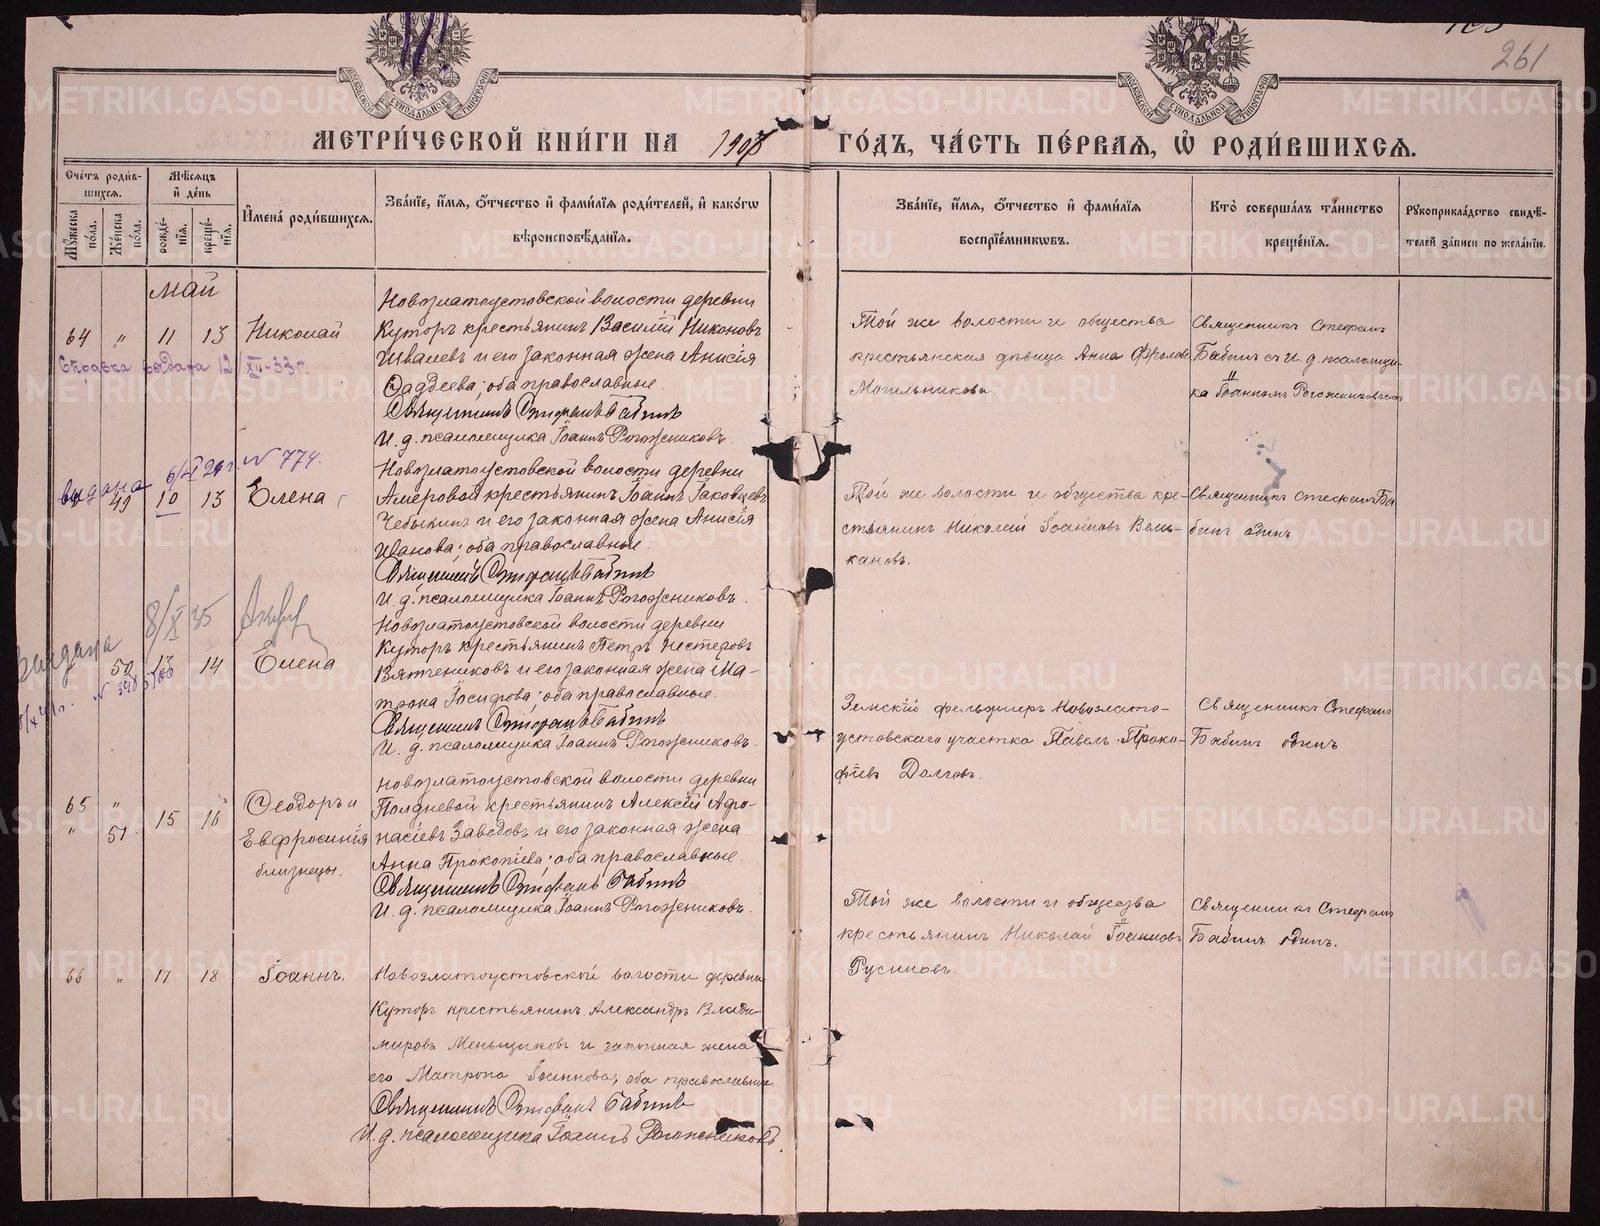 261
МОСКОВСКОЙ СУНОДАЛЬНОЙ ТИПОГРАФІИ
МОСКОВСКОЙ СУНОДАЛЬНОЙ ТИПОГРАФІИ
МЕТРИ́ЧЕСКОЙ КНИ́ГИ НА 1908 ГО́ДЪ, ЧА́СТЬ ПЕ́РВАЯ, Ѡ҆ РОДИ́ВШИХСЯ.
Сче́тъ роди́в-
шихся.
Мꙋ́жеска по́ла.
Же́нска по́ла.
Мѣ́сяцъ
и҆ де́нь
рожде́-
нїя.
креще́-
нїя.
И҆мена̀ роди́вшихся.
Зва́нїе, и҆́мя, ѻ҆́тчество и҆ фами́лїя роди́телей, и҆ како́гѡ
вѣроисповѣ́данїя.
Зва́нїе, и҆́мя, ѻ҆́тчество и҆ фами́лїя
воспрїе́мникѡвъ.
Кто̀ соверша́лъ та́инство
креще́нїя.
Рꙋкоприкла́дство свидѣ́-
телей за́писи по жела́нїю.
май
64 „ 11 13 Николай
Новозлатоустовской волости деревни
Куторъ крестьянинъ Василій Никоновъ
Швалевъ и его законная жена Анисія
Фаддеева; оба православные.
Священникъ Стефанъ Бабинъ
И. д. псаломщика Іоаннъ Рогожниковъ.
Той же волости и общества
крестьянская дѣвица Анна Фролова
Могильникова.
Священникъ Стефанъ
Бабинъ съ И. д. псаломщи-
ка Іоанномъ Рогожниковымъ
Справка выдана 12/XII-33г.
выдана 6/XI 24г. N 774.
49 10 13 Елена
Новозлатоустовской волости деревни
Амеровой крестьянинъ Іоаннъ Іаковлевъ
Чебыкинъ и его законная жена Анисія
Иванова; оба православные.
Священникъ Стефанъ Бабинъ
И. д. псаломщика Іоаннъ Рогожниковъ.
Той же волости и общества кре-
стьянинъ Николай Іоанновъ Вели-
кановъ.
Священникъ Стефанъ Ба-
бинъ одинъ
8/X 35
выдана
„ 50 13 14 Елена
Новозлатоустовской волости деревни
Куторъ крестьянинъ Петръ Нестеровъ
Вятчениковъ и его законная жена Ма-
трона Іосифова; оба православные.
Священникъ Стефанъ Бабинъ
И. д. псаломщика Іоаннъ Рогожниковъ.
Земскій фельдшеръ Новозлато-
устовскаго участка Павелъ Проко-
фіевъ Долговъ.
Священникъ Стефанъ
Бабинъ одинъ
65 „
„ 51 15 16
Ѳеодоръ и
Евфросинія
близнецы.
Новозлатоустовской волости деревни
Полдневой крестьянинъ Алексій Афо-
насіевъ Заводовъ и его законная жена
Анна Прокопіева; оба православные.
Священникъ Стефанъ Бабинъ
И. д. псаломщика Іоаннъ Рогожниковъ.
Той же волости и общества
крестьянинъ Николай Іоанновъ
Русиновъ.
Священникъ Стефанъ
Бабинъ одинъ.
66 „ 17 18 Іоаннъ.
Новозлатоустовской волости деревни
Куторъ крестьянинъ Александръ Влади-
мировъ Меньщиковъ и законная жена
его Матрона Іоаннова; оба православные.
Священникъ Стефанъ Бабинъ
И. д. псаломщика Іоаннъ Рогожниковъ.
METRIKI.GASO-URAL.RU